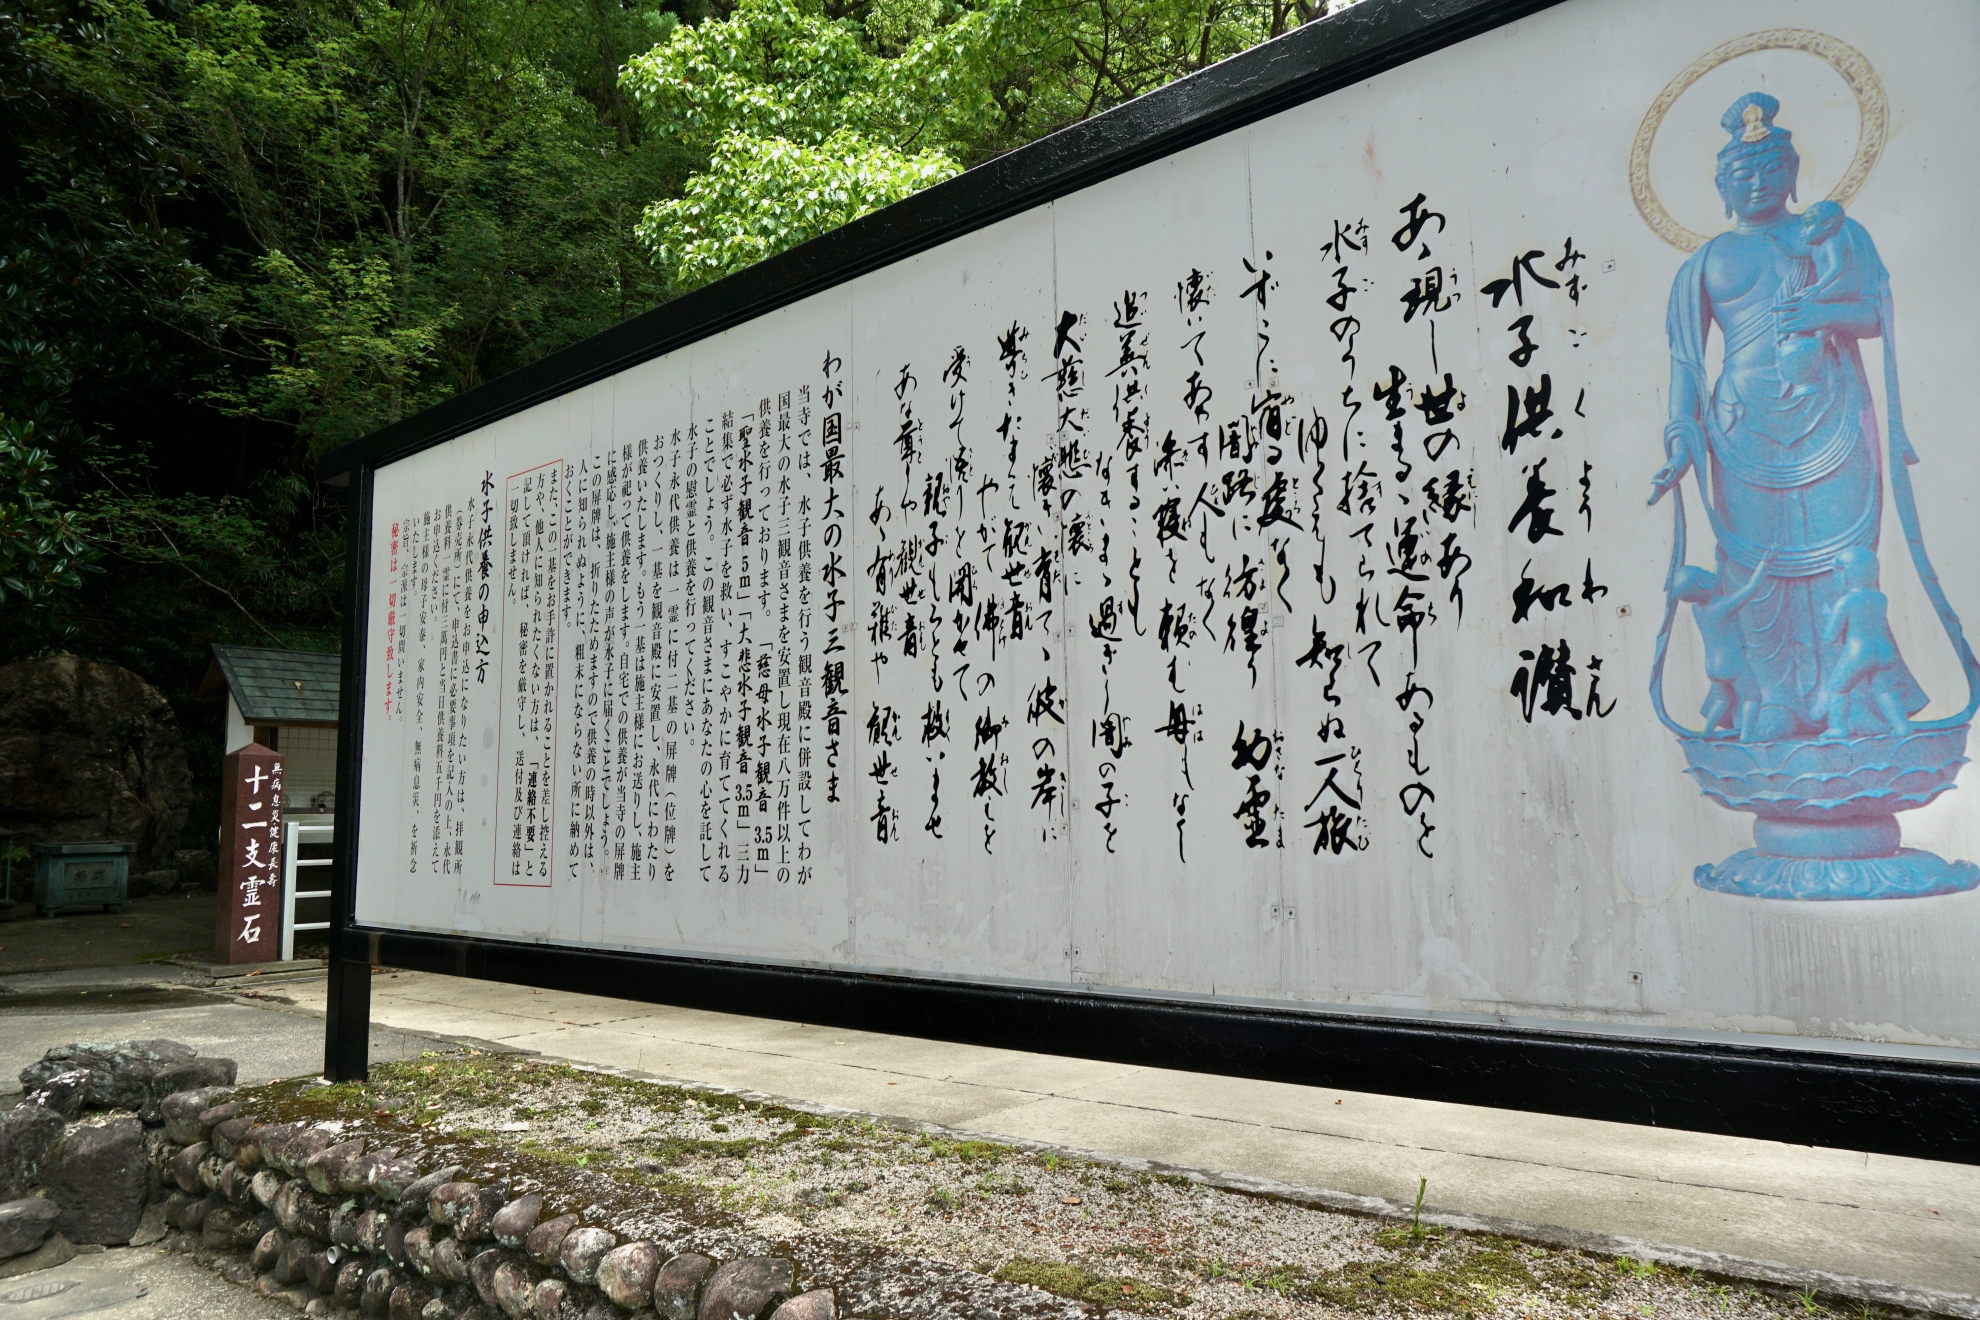 水子供養和讃
みずこくようわさん
あゝ現し世の縁あり
生まるゝ運命あるものを
水子のうちに捨てられて
ゆくえも知らぬ一人旅
いずこに宿る処なく
闇路に彷徨う幼霊
懐いてあやす人もなく
添い寝を頼む母もなし
追善供養することも
なきまゝ過ぎし闇の子を
大慈大悲の懐に
懐き育てゝ彼の岸に
導きたまえ観世音
やがて佛の御教えを
受けて悟りを開かせて
親子もろとも救いませ
あな尊しや観世音
あゝ有難や観世音
わが国最大の水子三観音さま
当寺では、水子供養を行う観音殿に併設してわが
国最大の水子三観音さまを安置し現在八万件以上の
供養を行っております。「慈母水子観音 3.5m」
「聖水子観音 5m」「大悲水子観音 3.5m」三力
結集で必ず水子を救い、すこやかに育ててくれる
ことでしょう。この観音さまにあなたの心を託して
水子の慰霊と供養を行ってください。
水子永代供養は一霊に付二基の屏牌（位牌）を
おつくりし、一基を観音殿に安置し、永代にわたり
供養いたします。もう一基は施主様にお送りし、施主
様が祀って供養をします。自宅での供養が当寺の屏牌
に感応し、施主様の声が水子に届くことでしょう。
この屏牌は、折りたためますので供養の時以外は、
人に知られぬように、粗末にならない所に納めて
おくことができます。
また、この一基をお手許に置かれることを差し控える
方や、他人に知られたくない方は、「連絡不要」と
記して頂ければ、秘密を厳守し、送付及び連絡は
一切致しません。
水子供養の申込方
水子永代供養をお申込になりたい方は、拝観所
（券売所）にて、申込書に必要事項を記入の上、永代
供養料一霊に付三萬円と当日供養料五千円を添えて
お申込ください。
施主様の母子安泰、家内安全、無病息災、を祈念
いたします。
宗旨、宗派は一切問いません。
秘密は一切厳守致します。
無病息災・健康長寿
十二支霊石